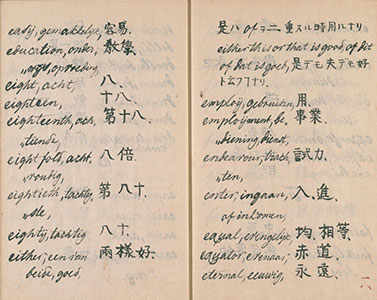 easy, gemakkelyk, 容易.
education, onder, 教業,
eight, acht, 八.
eighteen, 十八.
eighteenth, ach, 第十八.
„tiende,
eight fold, acht, 八倍.
„voudig,
eightieth, tachtig, 第八十.
„ste,
eighty, tachtig 八十.
either, een van 兩樣好.
beide, goed,
是ハ of ヲ二重ヌル時用ルナリ
either this or that is good, of dit
of dat is goed, 是デモ夫デモ好
ト云フナリ.
employ, gebruiken, 用.
employment, be, 事業.
„diening, dienst,
endeavour, trach, 試力.
„ten,
enter, ingaan, 入、進.
of inkomen,
equal, 均、相等.
equator, evenaar, 赤道
eternal, eeuwig, 永遠.